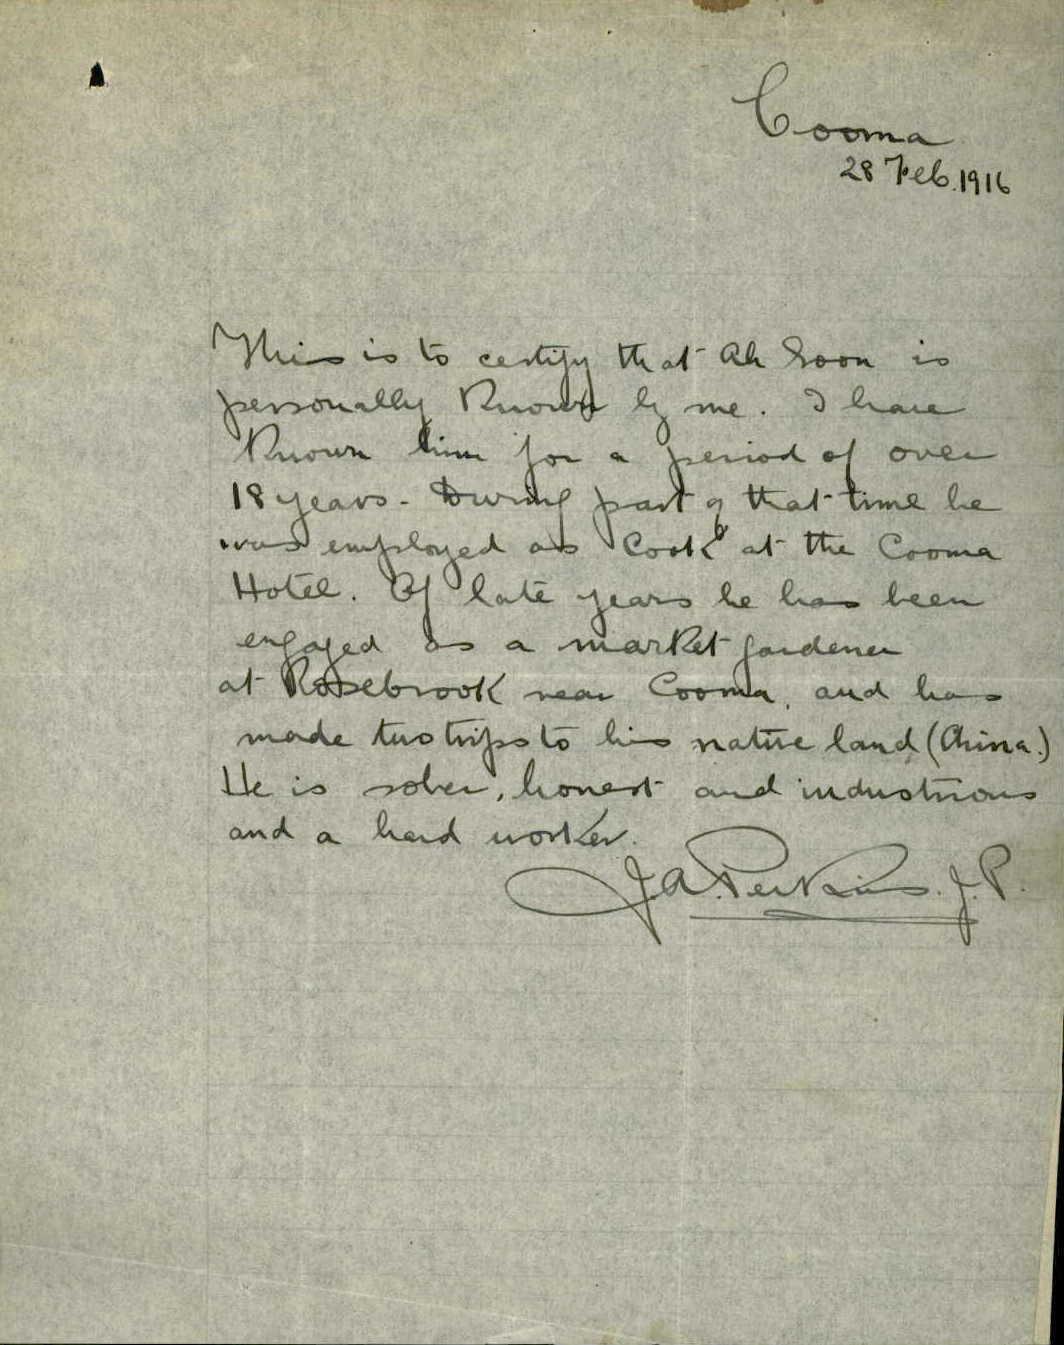 Cooma
28 Feb. 1916
This is to certify that Ah Soon is
personally Known by me. I have
Known him for a period of over
18 years. During part of that time he
was employed as Cook at the Cooma
Hotel. Of late years he has been
engaged as a market gardener
at Rosebrook near Cooma, and has
made two trips to his native land (China.)
He is sober, honest and industrious
and a hard worker.
J.A. Perkins. J.P.